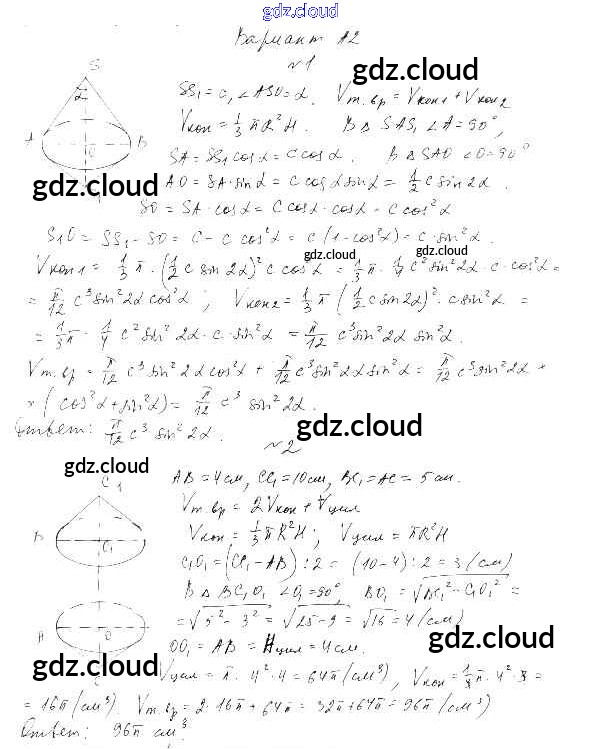 gdz.cloud
Вариант А2
№1
gdz.cloud
S
SS₁ = c, ∠ASO = α. Vт.вр = Vкон1 + Vкон2
α
Vкон = 1/3 πR²H. В △ SAS₁ ∠A = 90°,
A O B
SA = SS₁ cos α = c cos α. В △ SAO ∠O = 90°
gdz.cloud AO = SA · sin α = c cos α sin α = 1/2 c sin 2α.
SO = SA · cos α = c cos α · cos α = c cos² α
S₁O = SS₁ - SO = c - c cos² α = c (1 - cos² α) = c · sin² α.
gdz.cloud
Vкон1 = 1/3 π · (1/2 c sin 2α)² c cos² α = 1/3 π · 1/4 c² sin² 2α · c · cos² α =
= π/12 c³ sin² 2α cos² α ; Vкон2 = 1/3 π (1/2 c sin 2α)² · c sin² α =
= 1/3 π · 1/4 c² sin² 2α · c · sin² α = π/12 c³ sin² 2α sin² α.
Vт.вр = π/12 c³ sin² 2α cos² α + π/12 c³ sin² 2α sin² α = π/12 c³ sin² 2α ×
× (cos² α + sin² α) = π/12 c³ sin² 2α.
Ответ: π/12 c³ sin² 2α. gdz.cloud
№2
gdz.cloud
C₁
AB = 4 см, CC₁ = 10 см, BC₁ = AC = 5 см.
Vт.вр = 2Vкон + Vцил
B O₁
Vкон = 1/3 πR²H ; Vцил = πR²H
C₁O₁ = (CC₁ - AB) : 2 = (10 - 4) : 2 = 3 (см)
В △ BC₁O₁ ∠O₁ = 90°, BO₁ = √BC₁² - C₁O₁² =
A O
= √5² - 3² = √25 - 9 = √16 = 4 (см)
OO₁ = AB = Hцил = 4 см. gdz.cloud
gdz.cloud Vцил = π · 4² · 4 = 64π (см³), Vкон = 1/3 π · 4² · 3 =
= 16π (см³). Vт.вр = 2 · 16π + 64π = 32π + 64π = 96π (см³)
Ответ: 96π см³.